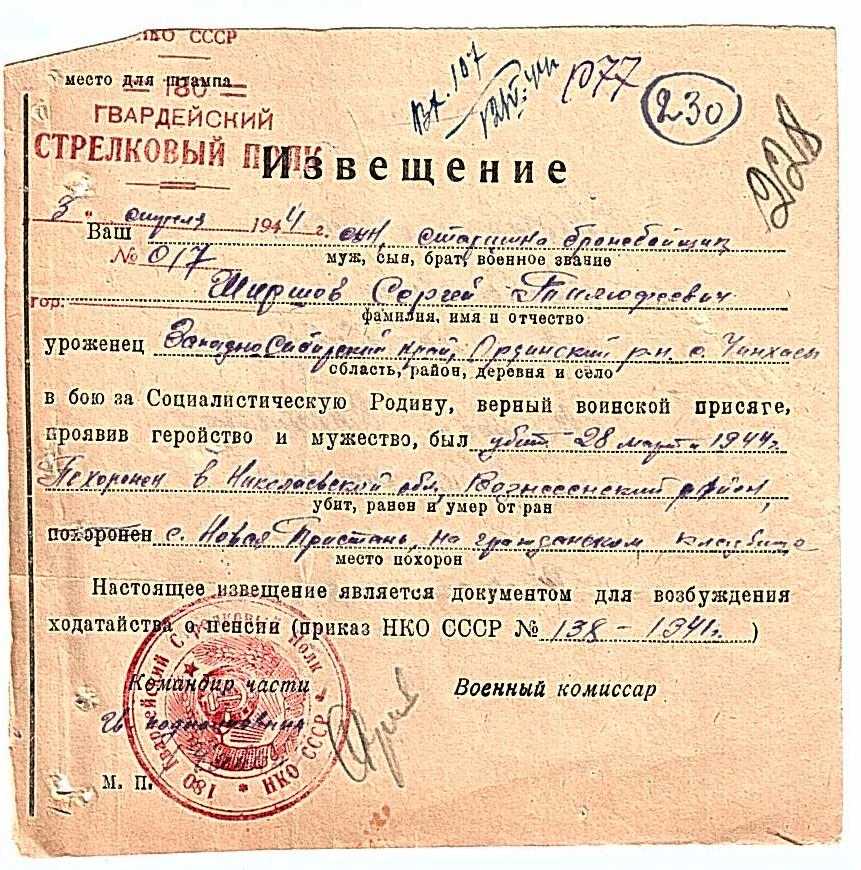 НКО СССР
место для штампа
= 180 =
ГВАРДЕЙСКИЙ
СТРЕЛКОВЫЙ ПОЛК
Вх. 107
р77
230
228
Извещение
3 " апреля 1944 г.
Ваш сын, старшина бронебойщик
№ 017
муж, сын, брат, военное звание
гор.
Ширшов Сергей Тимофеевич
фамилия, имя и отчество
уроженец Западно Сибирский край, Ордынский р-н. с. Чингасы
область, район, деревня и село
в бою за Социалистическую Родину, верный воинской присяге,
проявив геройство и мужество, был убит 28 марта 1944 г.
Похоронен в Николаевской обл, Вознесенский район,
убит, ранен и умер от ран
похоронен с. Новая Пристань, на гражданском кладбище
место похорон
Настоящее извещение является документом для возбуждения
ходатайства о пенсии (приказ НКО СССР № 138 - 1941г. )
Командир части Военный комиссар
гв подполковник
М. П.
180 Гвардейский Стрелковый полк * НКО СССР *